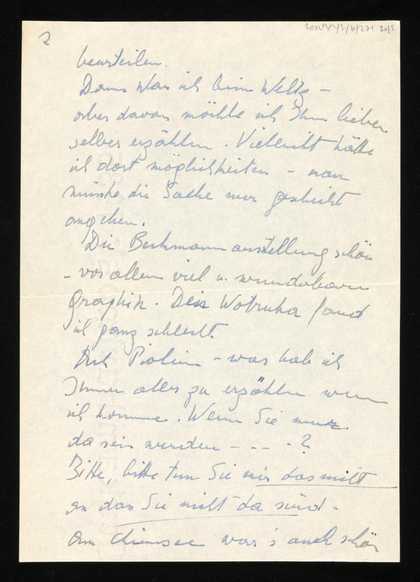 2
beurteilen.
Dann war ich beim Weltz –
aber davon möchte ich Ihnen lieber
selber erzählen. Vielleicht hätte
ich dort möglichkeiten – man
müsste die Sache nur gescheit
angehen.
Die Beckmannausstellung schön
– vor allem viel u. wunderbare
Graphik. Den Wotruba fand
ich ganz schlecht.
Ach – was hab ich
Ihnen alles zu erzählen wenn
ich komme. Wenn Sie nur
da sein werden – – – ?
Bitte, bitte tun Sie mir das nicht
an das Sie nicht da sind –
Am Chiemsee war's auch schön